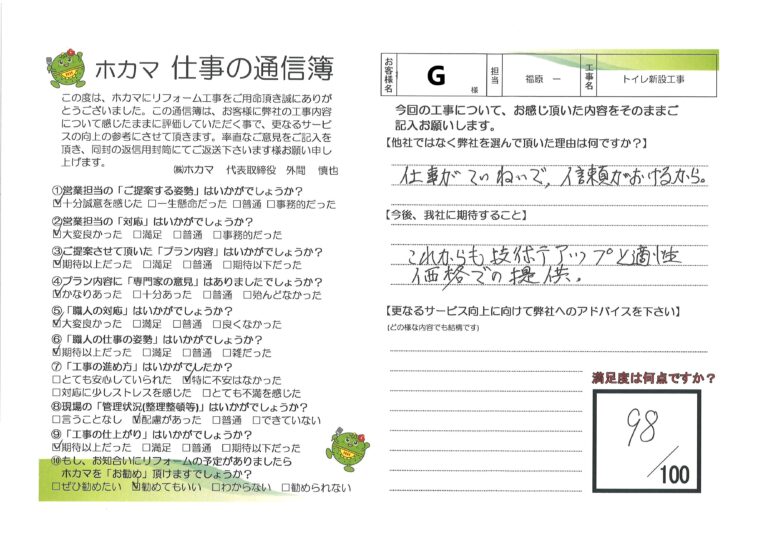 ホカマ 仕事の通信簿
この度は、ホカマにリフォーム工事をご用命頂き誠にありが
とうございました。この通信簿は、お客様に弊社の工事内容
について感じたままに評価していただく事で、更なるサービ
スの向上の参考にさせて頂きます。率直なご意見をご記入を
頂き、同封の返信用封筒にてご返送下さいます様お願い申し
上げます。
㈱ホカマ 代表取締役 外間 慎也
①営業担当の「ご提案する姿勢」はいかがでしょうか?
☑十分誠意を感じた □一生懸命だった □普通 □事務的だった
②営業担当の「対応」はいかがでしょうか?
☑大変良かった □満足 □普通 □事務的だった
③ご提案させて頂いた「プラン内容」はいかがでしょうか?
☑期待以上だった □満足 □普通 □期待以下だった
④プラン内容に「専門家の意見」はありましたでしょうか?
☑かなりあった □十分あった □普通 □殆んどなかった
⑤「職人の対応」はいかがでしょうか?
☑大変良かった □満足 □普通 □良くなかった
⑥「職人の仕事の姿勢」はいかがでしょうか?
☑期待以上だった □満足 □普通 □雑だった
⑦「工事の進め方」はいかがでしたか?
□とても安心していられた ☑特に不安はなかった
□対応に少しストレスを感じた □とても不満を感じた
⑧現場の「管理状況(整理整頓等)」はいかがでしょうか?
□言うことなし ☑配慮があった □普通 □できていない
⑨「工事の仕上がり」はいかがでしょうか?
☑期待以上だった □満足 □普通 □期待以下だった
⑩もし、お知合いにリフォームの予定がありましたら
ホカマを「お勧め」頂けますでしょうか?
□ぜひ勧めたい ☑勧めてもいい □わからない □勧められない
お客様名 G 様 担当 福原 一 工事名 トイレ新設工事
今回の工事について、お感じ頂いた内容をそのままご
記入お願いします。
【他社ではなく弊社を選んで頂いた理由は何ですか?】
仕事がていねいで、信頼がおけるから。
【今後、我社に期待すること】
これからも技術アップと適性
価格での提供。
【更なるサービス向上に向けて弊社へのアドバイスを下さい】
(どの様な内容でも結構です)
満足度は何点ですか?
98
/100